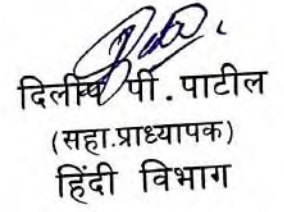 दिलीप पी. पाटील
(सहा.प्राध्यापक)
हिंदी विभाग